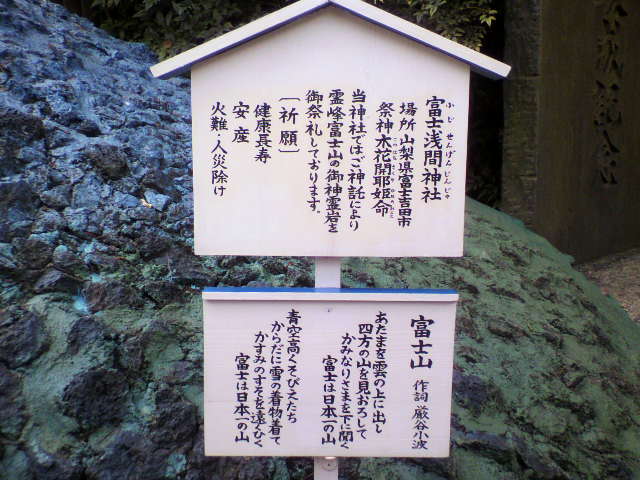 富士浅間神社
ふじせんげんじんじゃ
場所 山梨県富士吉田市
祭神 木花開耶姫命
当神社ではご神託により
霊峰富士山の御神霊岩を
御祭礼しております。
〔祈願〕
健康長寿
安産
火難・人災除け
富士山 作詞 巌谷小波
あたまを雲の上に出し
四方の山を見おろして
かみなりさまを下に聞く
富士は日本一の山
青空高くそびえたち
からだに雪の着物着て
かすみのすそを遠くひく
富士は日本一の山